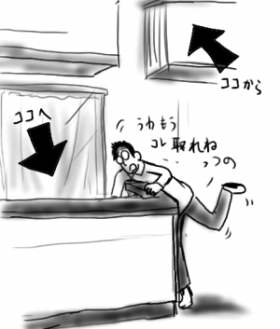 ココから
ココへ
うわもう
コレ取れね
っつの